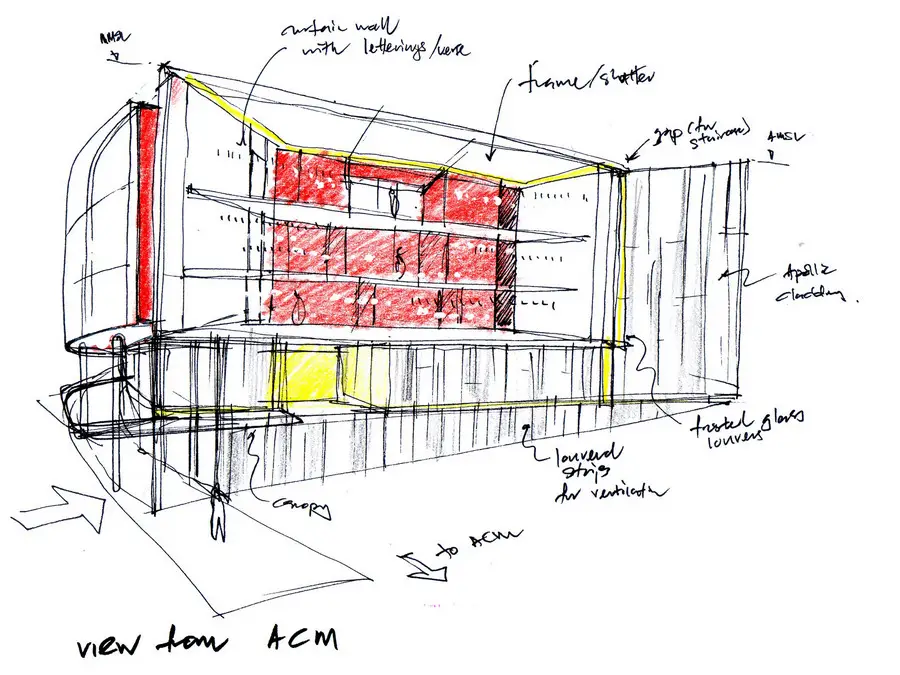 AMSL
curtain wall
with letterings/verse
frame/shutter
gap (for
staircase)
AMSL
cladding.
frosted glass
louvers
louvered
strips
for ventilation
canopy
to ACM
view from ACM